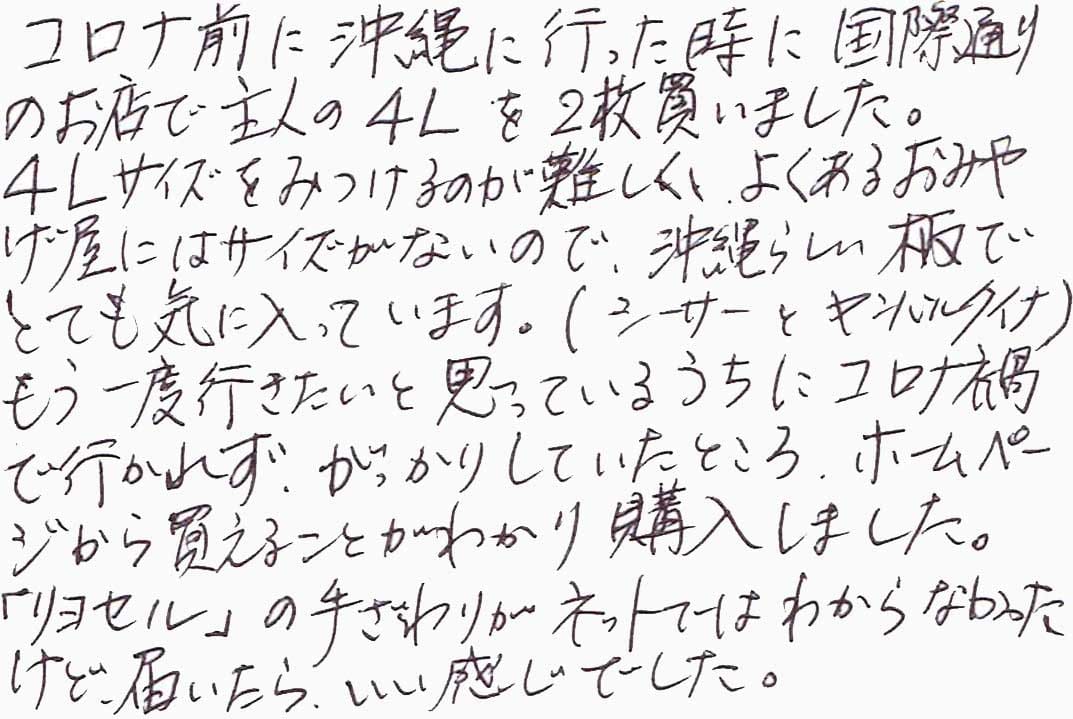 コロナ前に沖縄に行った時に国際通り
のお店で主人の4Lを2枚買いました。
4Lサイズをみつけるのが難しく、よくあるおみや
げ屋にはサイズがないので、沖縄らしい柄で
とても気に入っています。(シーサーとヤンバルクイナ)
もう一度行きたいと思っているうちにコロナ禍
で行かれず、がっかりしていたところ、ホームペー
ジから買えることがわかり購入しました。
「リヨセル」の手ざわりがネットではわからなかった
けど、届いたら、いい感じでした。